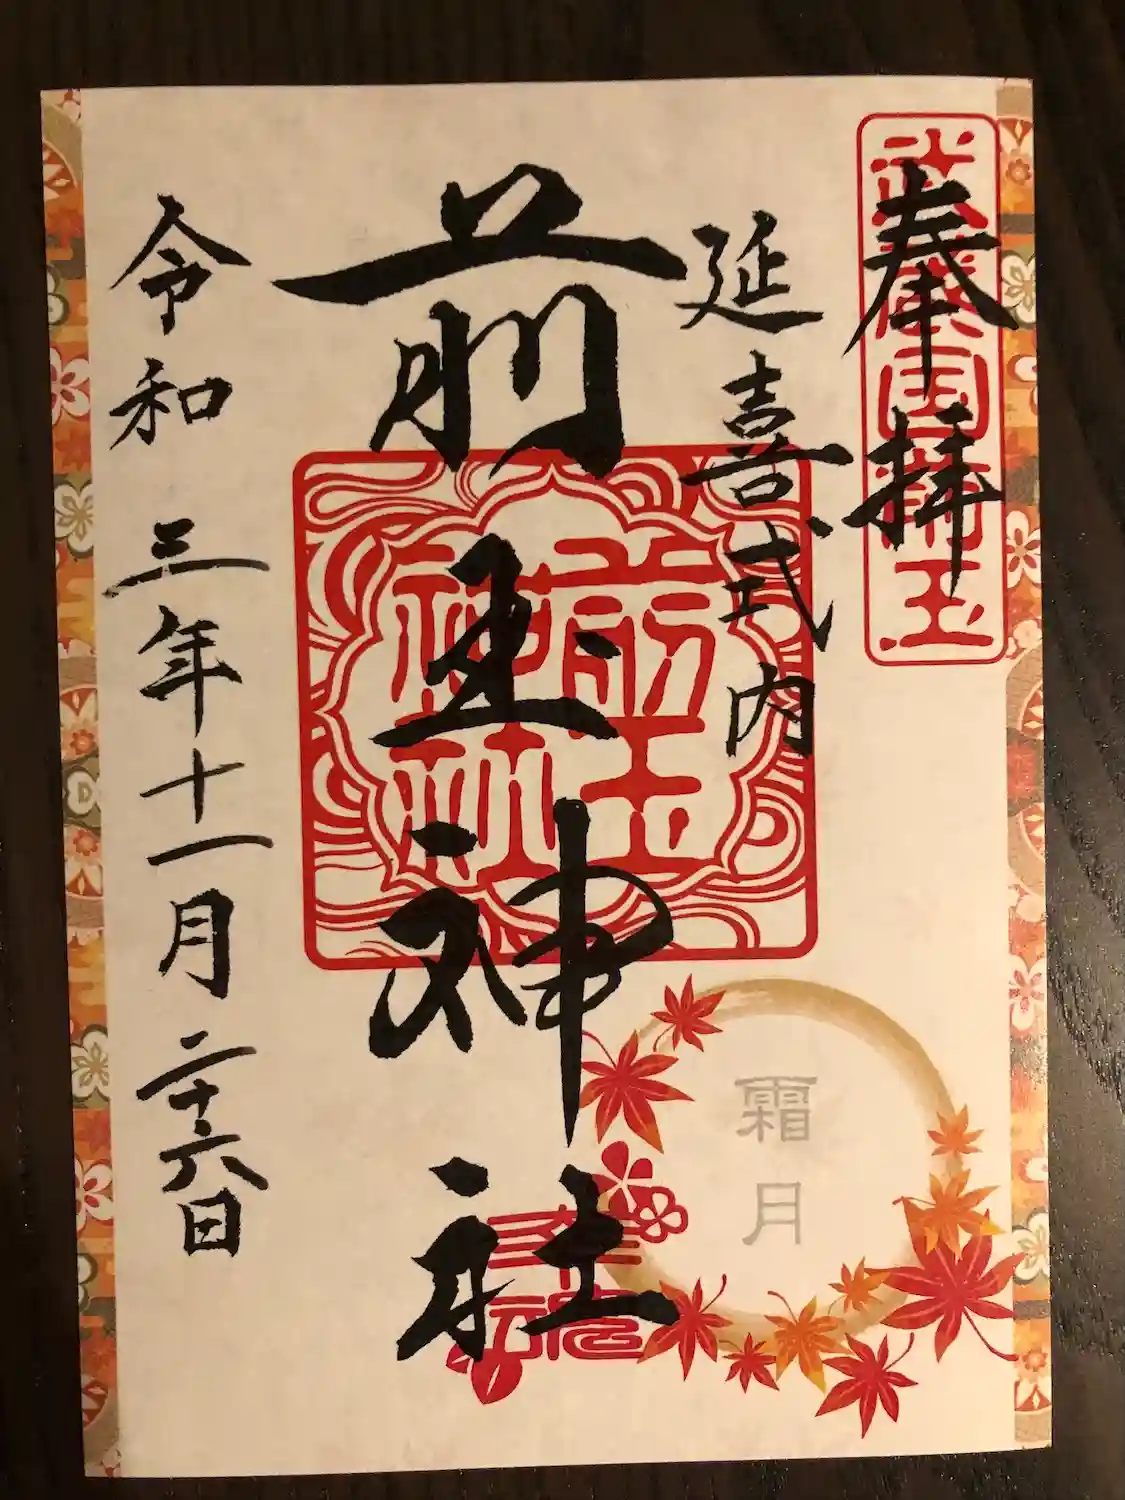 奉拝
武蔵国埼玉
延喜式内
前玉神社
前玉神社
令和三年十一月二十六日
霜月